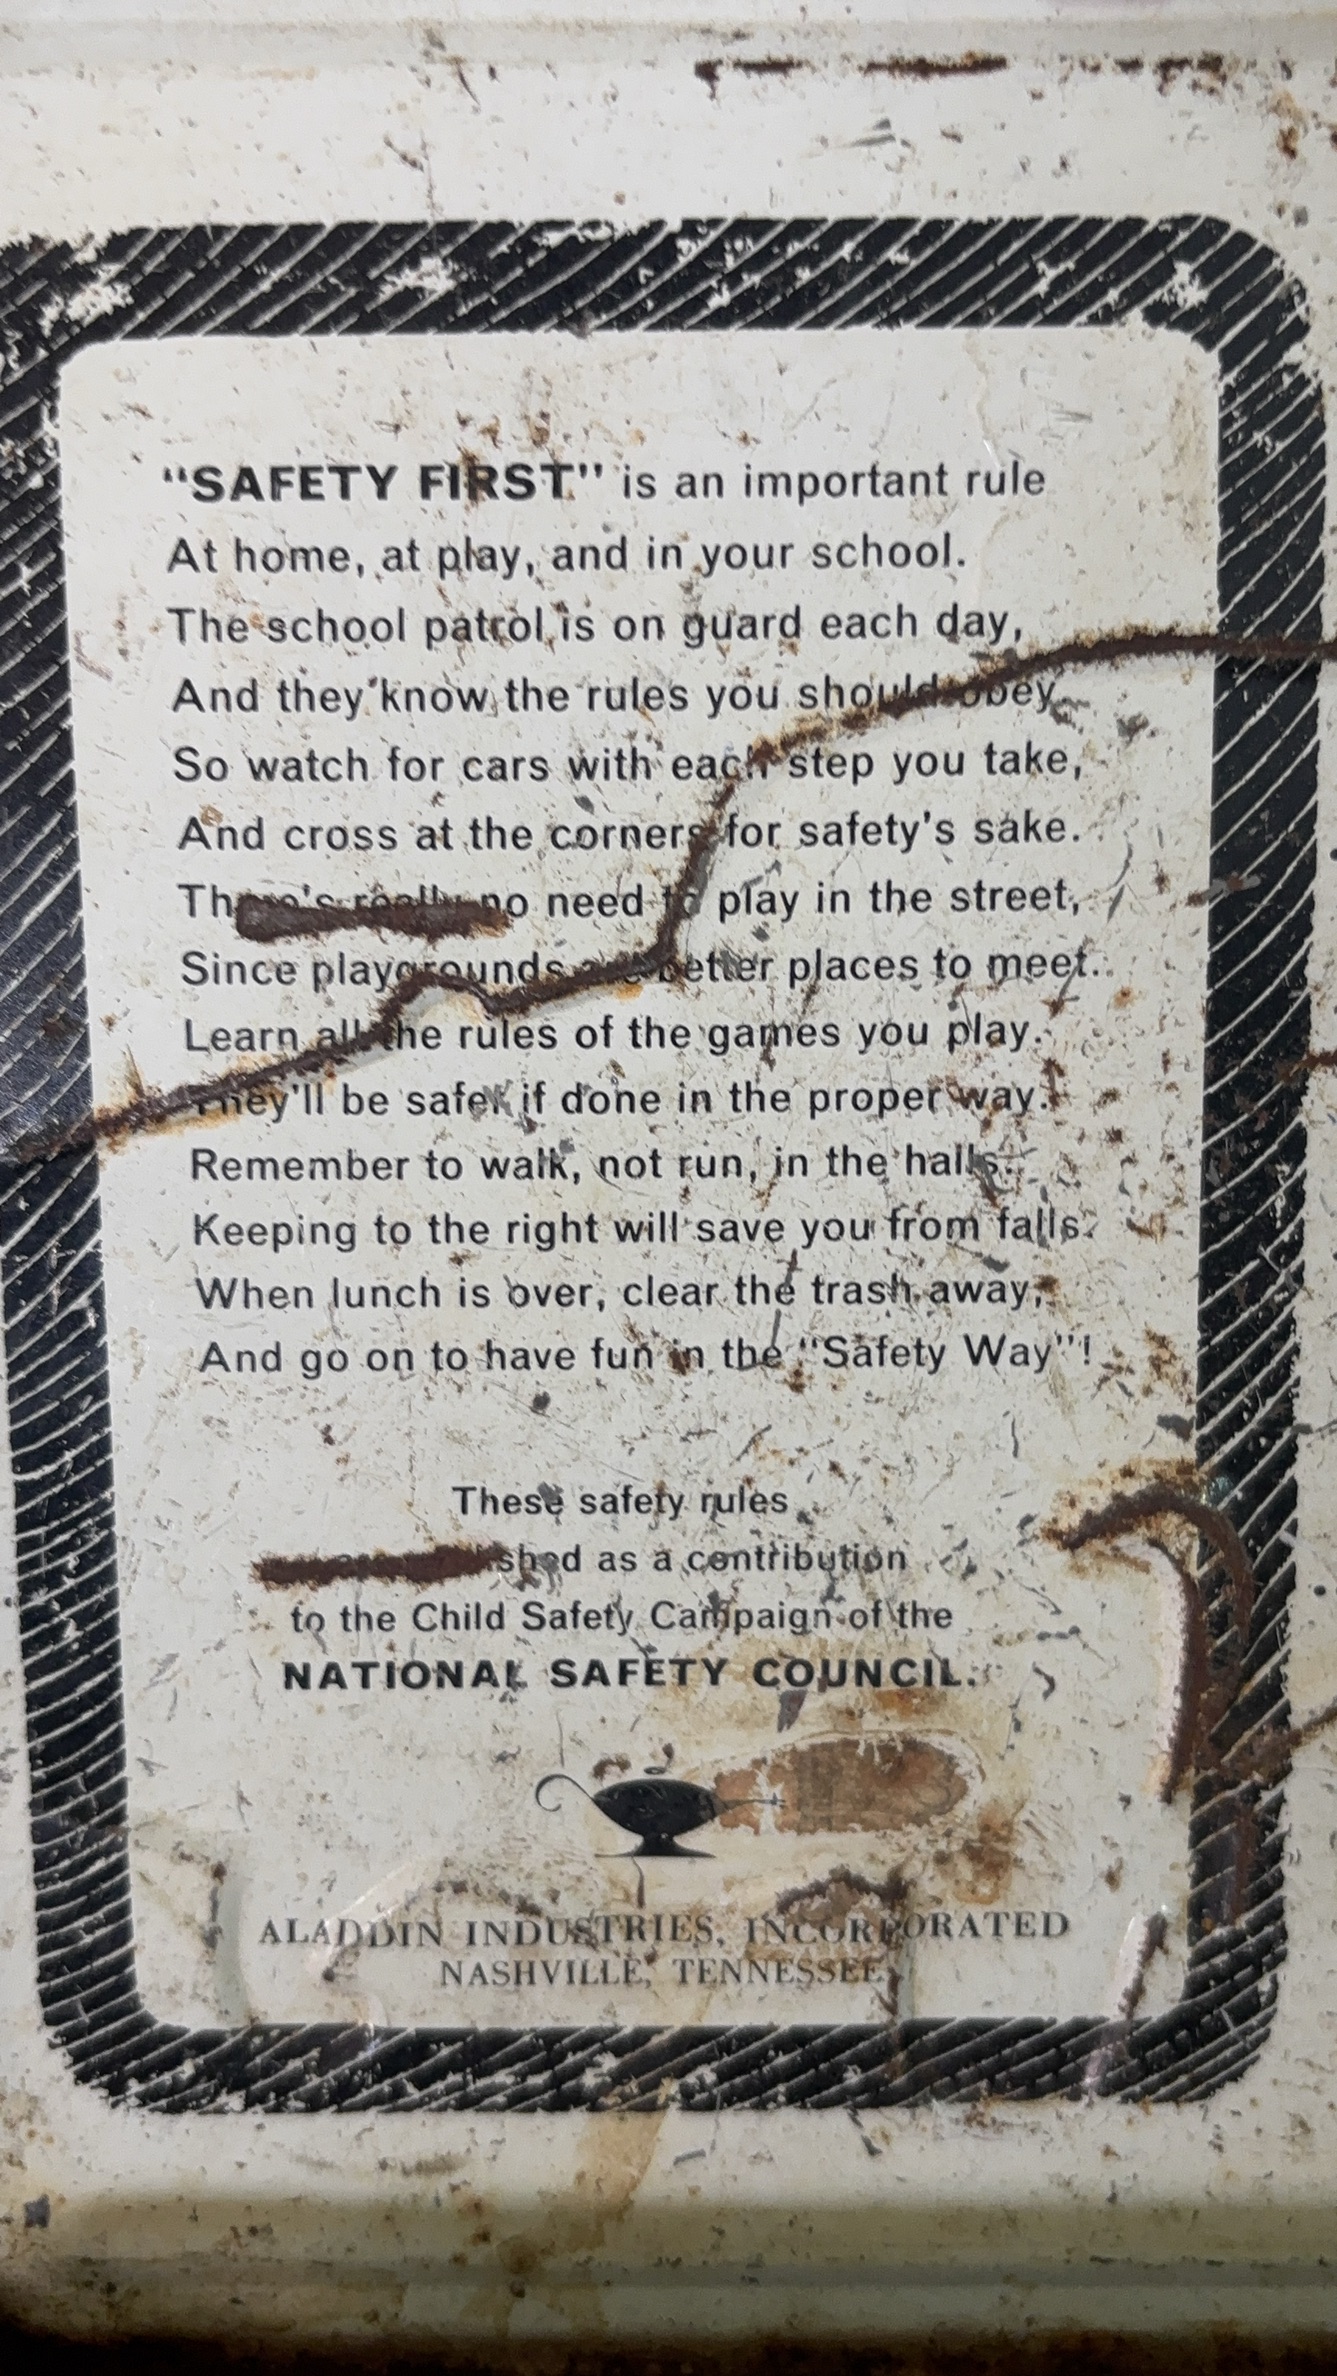 “SAFETY FIRST” is an important rule
At home, at play, and in your school.
The school patrol is on guard each day,
And they know the rules you should obey.
So watch for cars with each step you take,
And cross at the corners for safety's sake.
There's really no need to play in the street,
Since playgrounds are better places to meet.
Learn all the rules of the games you play.
They'll be safer if done in the proper way.
Remember to walk, not run, in the halls.
Keeping to the right will save you from falls.
When lunch is over, clear the trash away,
And go on to have fun in the “Safety Way”!
These safety rules
as a contribution
to the Child Safety Campaign of the
NATIONAL SAFETY COUNCIL.
ALADDIN INDUSTRIES, INCORPORATED
NASHVILLE, TENNESSEE